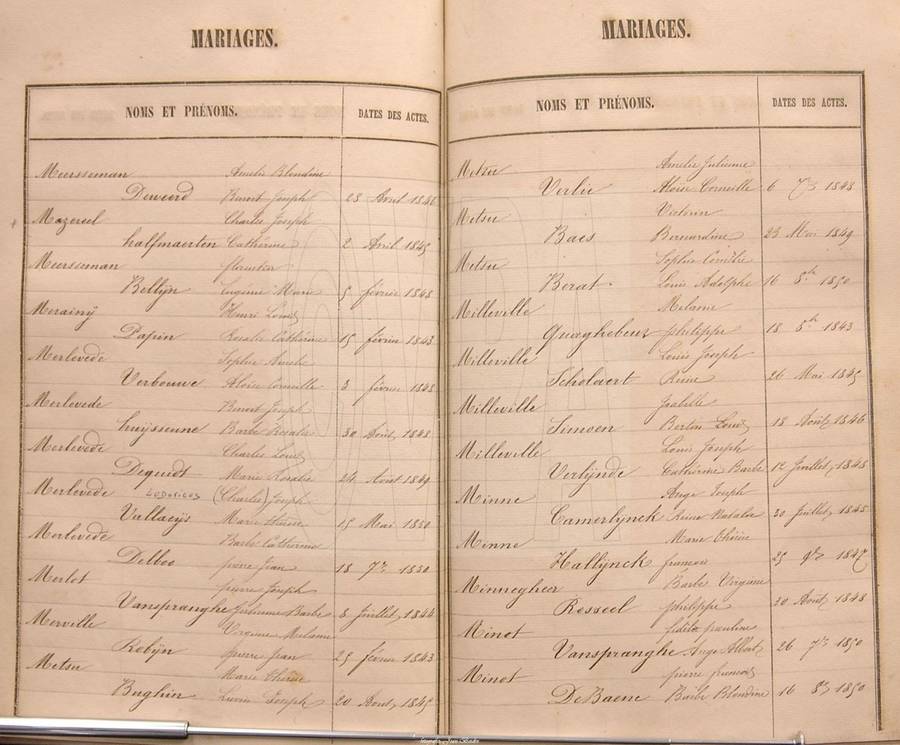 MARIAGES.
NOMS ET PRÉNOMS. DATES DES ACTES.
Meersseman Amelie Blondine
Deweerd Benoit Joseph 28 Avril 1846
Mazereel Charles Joseph
halfmaerten Catherine 2 Avril 1845
Meersseman florentin
Bellÿn Eugenie Marie 5 février 1848
Merainÿ Henri Louis
Papin Rosalie Cathérine 15 février 1843
Merlevede Sophie Amelie
Verbouwe Aloïse Corneille 3 février 1848
Merlevede Benoit Joseph
huÿsseune Barbe Rosalie 30 Août 1848
Merlevede Charles Louis
Dequidt Marie Rosalie 24 Août 1849
Merlevede LUDOVICUS (Charles) Joseph
Vallaeÿs Marie 15 Mai 1850
Merlevede Barbe Catherine
Delboo pierre Jean 18 7re 1850
Merlot pierre Joseph
Vanspranghe Julienne Barbe 8 Juillet 1844
Merville Virginie Melanie
Robÿn pierre Jean 25 février 1843
Metsu Marie Thérèse
Bughin Louis Joseph 20 Août 1845
MARIAGES.
NOMS ET PRÉNOMS. DATES DES ACTES.
Metsu Amelie Julienne
Verlie Aloïse Corneille 6 7re 1848
Metsu Victorin
Baes Bernardine 23 Mai 1849
Metsu Sophie
Berat Louis Adolphe 16 8re 1850
Milleville Melanie
Queghebeur philippe 18 8re 1843
Milleville Louis Joseph
Schelaert Reine 26 Mai 1845
Milleville Isabelle
Simoen Bertin Louis 18 Août 1846
Milleville Louis Joseph
Verlÿnde Catherine Barbe 12 Juillet 1848
Minne Ange Joseph
Camerlÿnck Reine Natalie 20 Juillet 1845
Minne Marie Thérèse
Hallÿnck francois 25 9re 1847
Minnegheer Barbe Virginie
Resseel philippe 20 Août 1848
Minet fidele pauline
Vanspranghe Ange Albert 26 7re 1850
Minet pierre francois
DeBaene Barbe Blondine 16 8re 1850